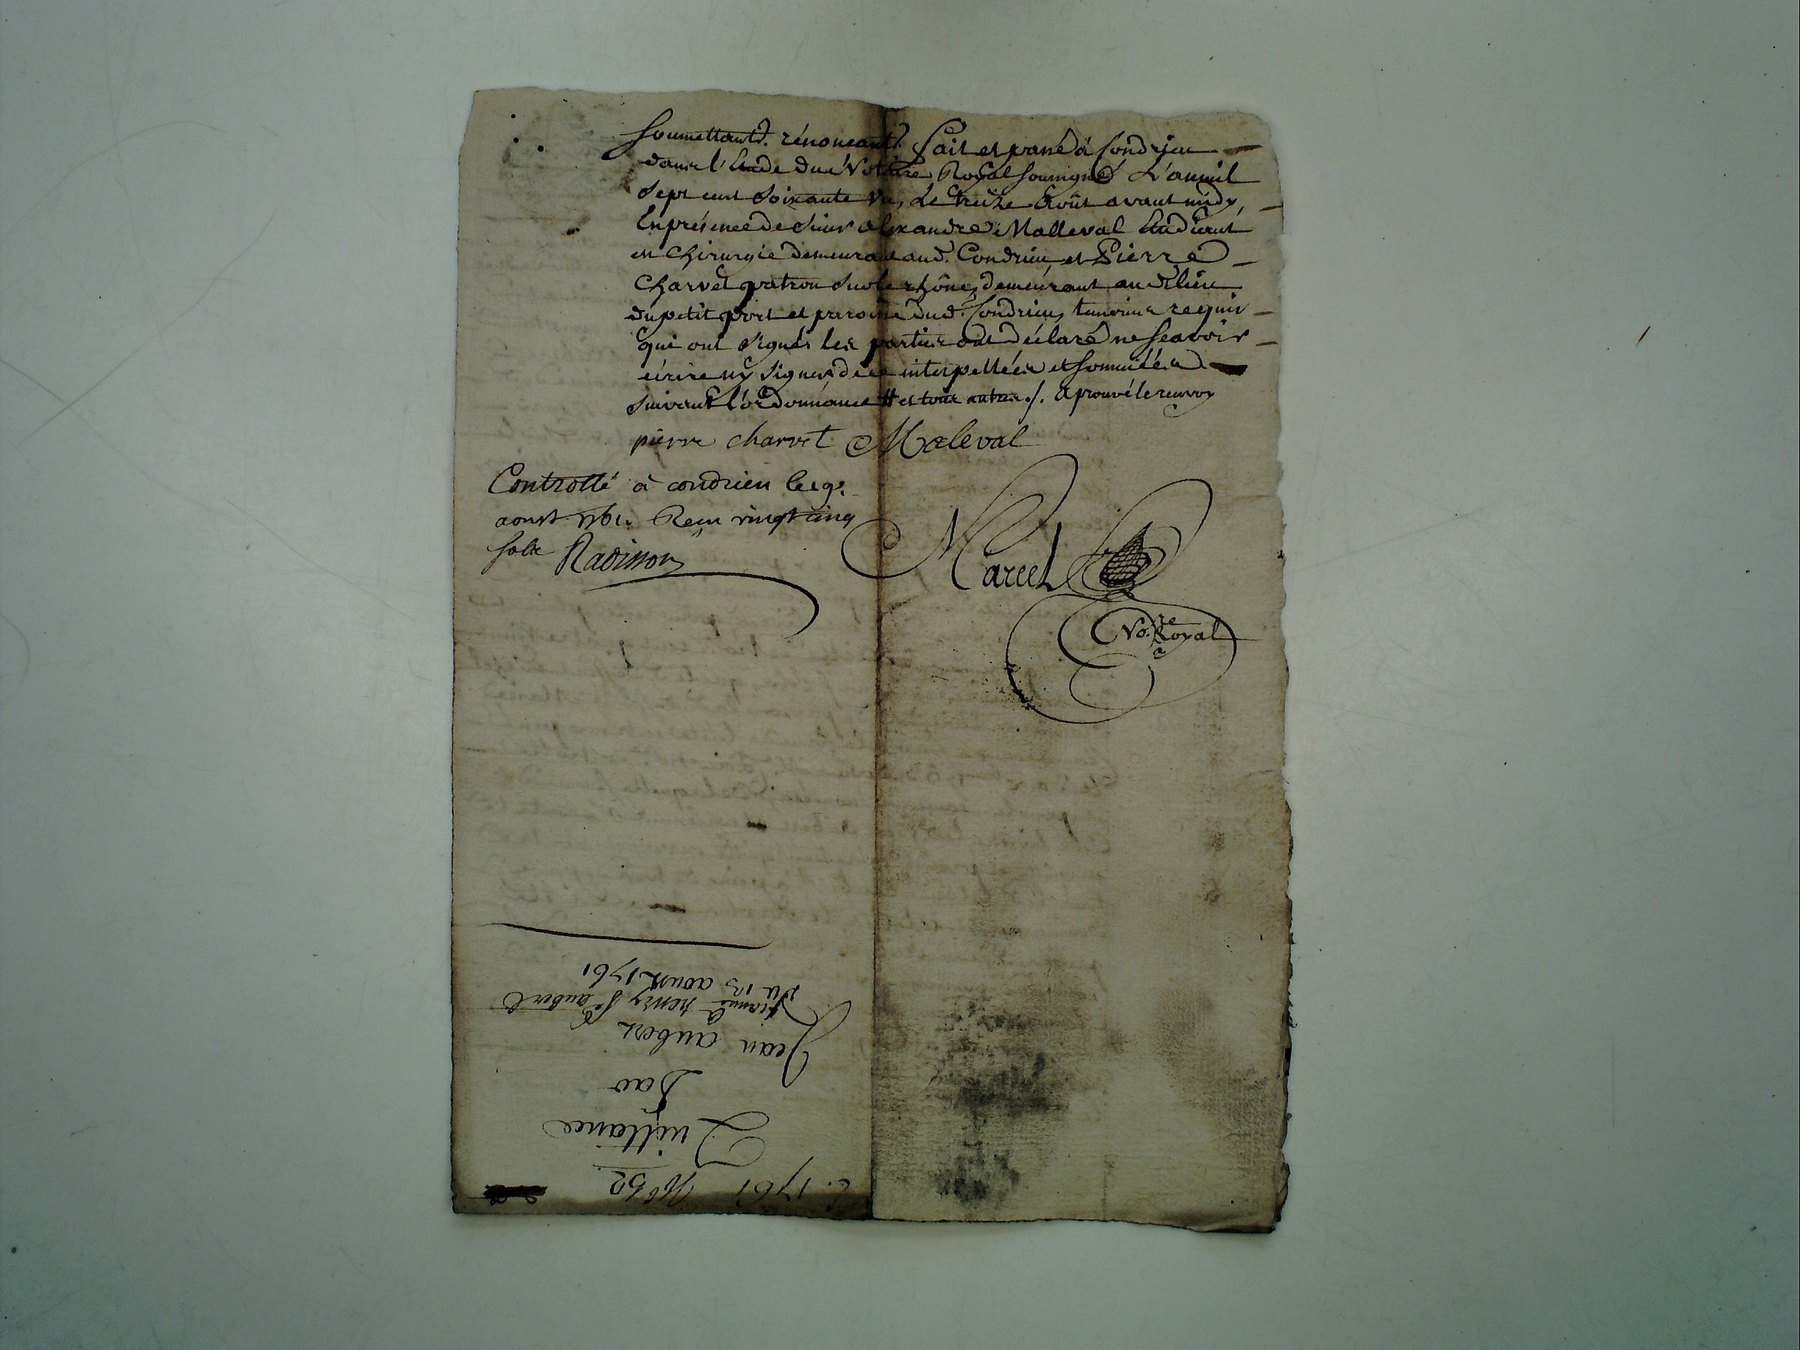 soumettant? rénonçant? fait et passé à Condrieu
dans l'Etude du Notaire Royal soussigné L'an mil
sept cent soixante un, Le treize Août avant midy,
En présence de sieur alexandre Malleval Etudiant
en Chirurgie demeurant aud. Condrieu et Pierre
Charvet patron sur le rhône, demeurant au lieu
du petit port et paroisse dud. Condrieu, temoins requis
qui ont signés les parties ont déclaré ne sçavoir
écrire ny signer de ce interpellées et sommées
suivant l'ordonnance # et tous autres ./. aprouvé le renvoy
pierre charvet Maleval
Controllé à condrieu le 19e.
aoust 1761. Reçu vingt cinq
sols Radisson
Marcel
No.re Royal
C. 1761 No 52
Quittance
par
Jean aubert
A jeanne henry fe aubert
Du 13 aoust 1761